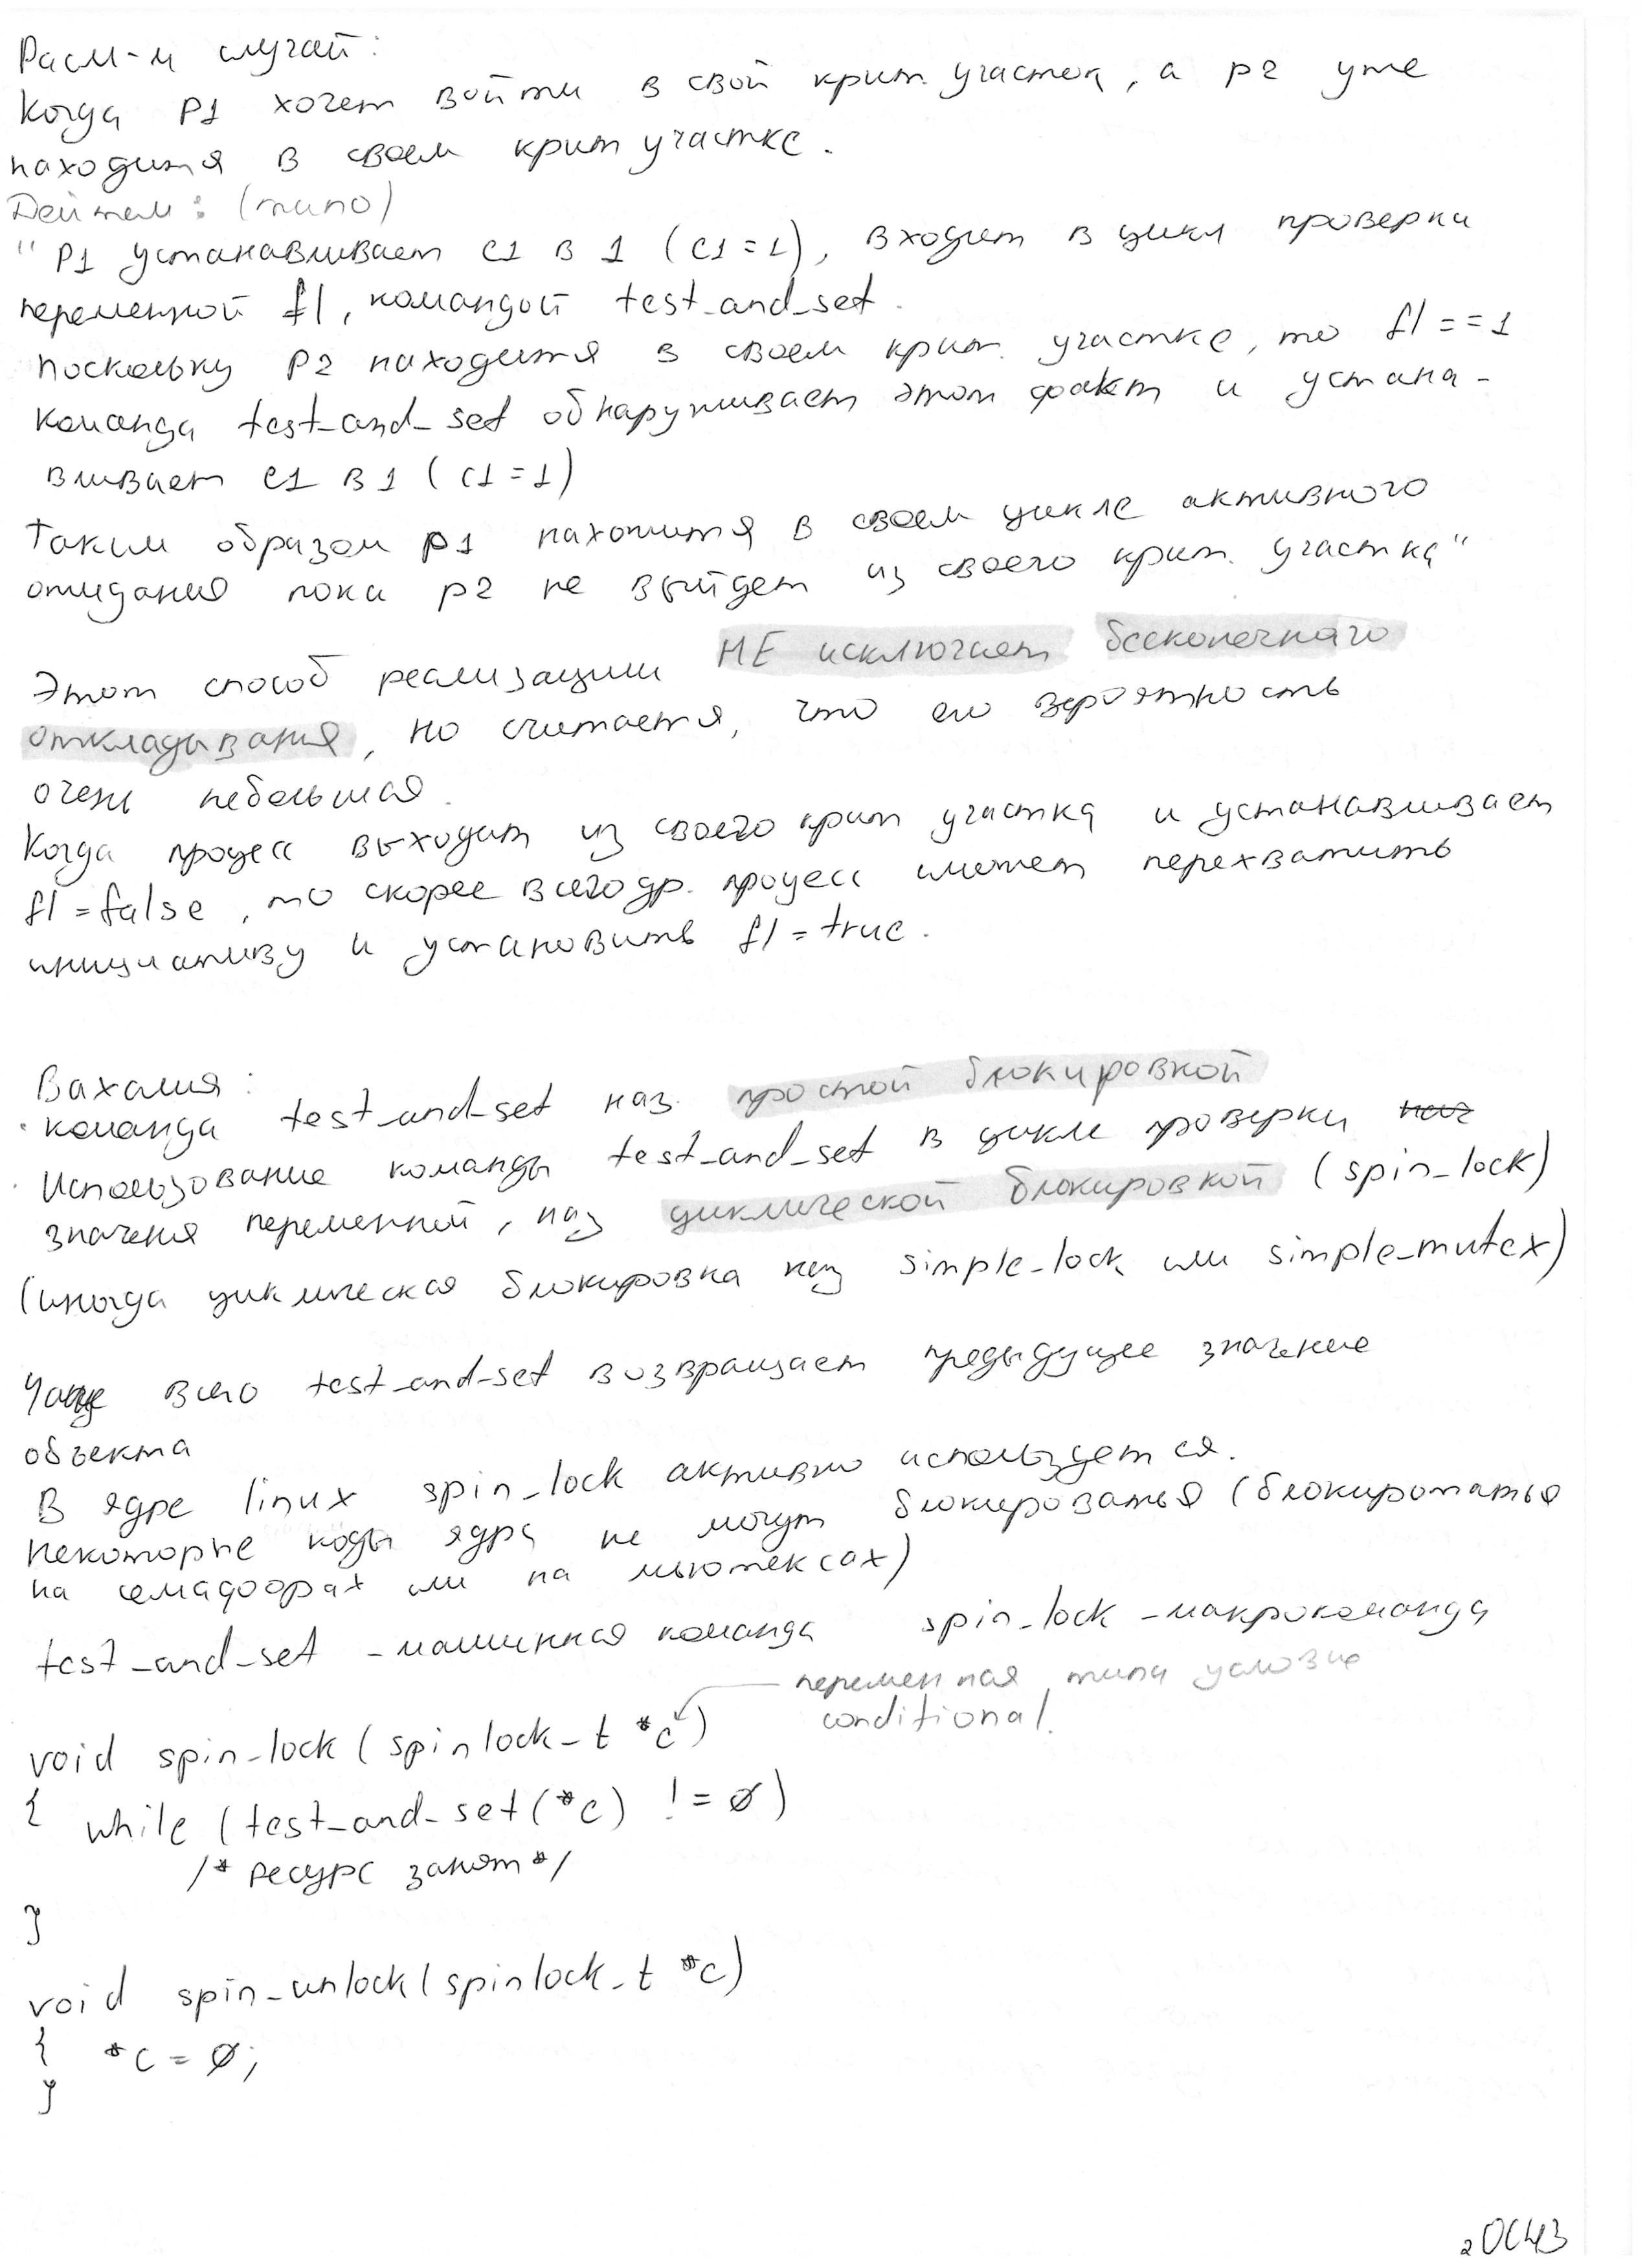 Расм-м случай:
Когда P1 хочет войти в свой крит. участок, а p2 уже
находится в своем крит участке.
Дейтел: (типо)
"P1 устанавливает c1 в 1 (c1=1), входит в цикл проверки
переменной fl, командой test_and_set.
поскольку P2 находится в своем крит. участке, то fl==1
команда test_and_set обнаруживает этот факт и устана-
вливает c1 в 1 (c1=1)
Таким образом p1 находится в своем цикле активного
ожидания пока p2 не выйдет из своего крит. участка"
Этот способ реализации НЕ исключает бесконечного
откладывания, но считается, что его вероятность
очень небольшая.
Когда процесс выходит из своего крит участка и устанавливает
fl=false, то скорее всего др. процесс может перехватить
инициативу и установить fl=true.
Вахалия:
· команда test_and_set наз. простой блокировкой
· Использование команды test_and_set в цикле проверки наз
значения переменной, наз циклической блокировкой (spin_lock)
(иногда циклическая блокировка наз simple_lock или simple_mutex)
Чаще всего test_and_set возвращает предыдущее значение
объекта
В ядре linux spin_lock активно используется.
Некоторые коды ядра не могут блокироваться (блокироваться
на семафорах или на мьютексах)
test_and_set - машинная команда spin_lock - макрокоманда
переменная типа условие
conditional.
void spin_lock(spinlock_t *c)
{ while (test_and_set(*c) != 0)
/* ресурс занят */
}
void spin_unlock(spinlock_t *c)
{ *c = 0;
}
2 ОС ЧЗ